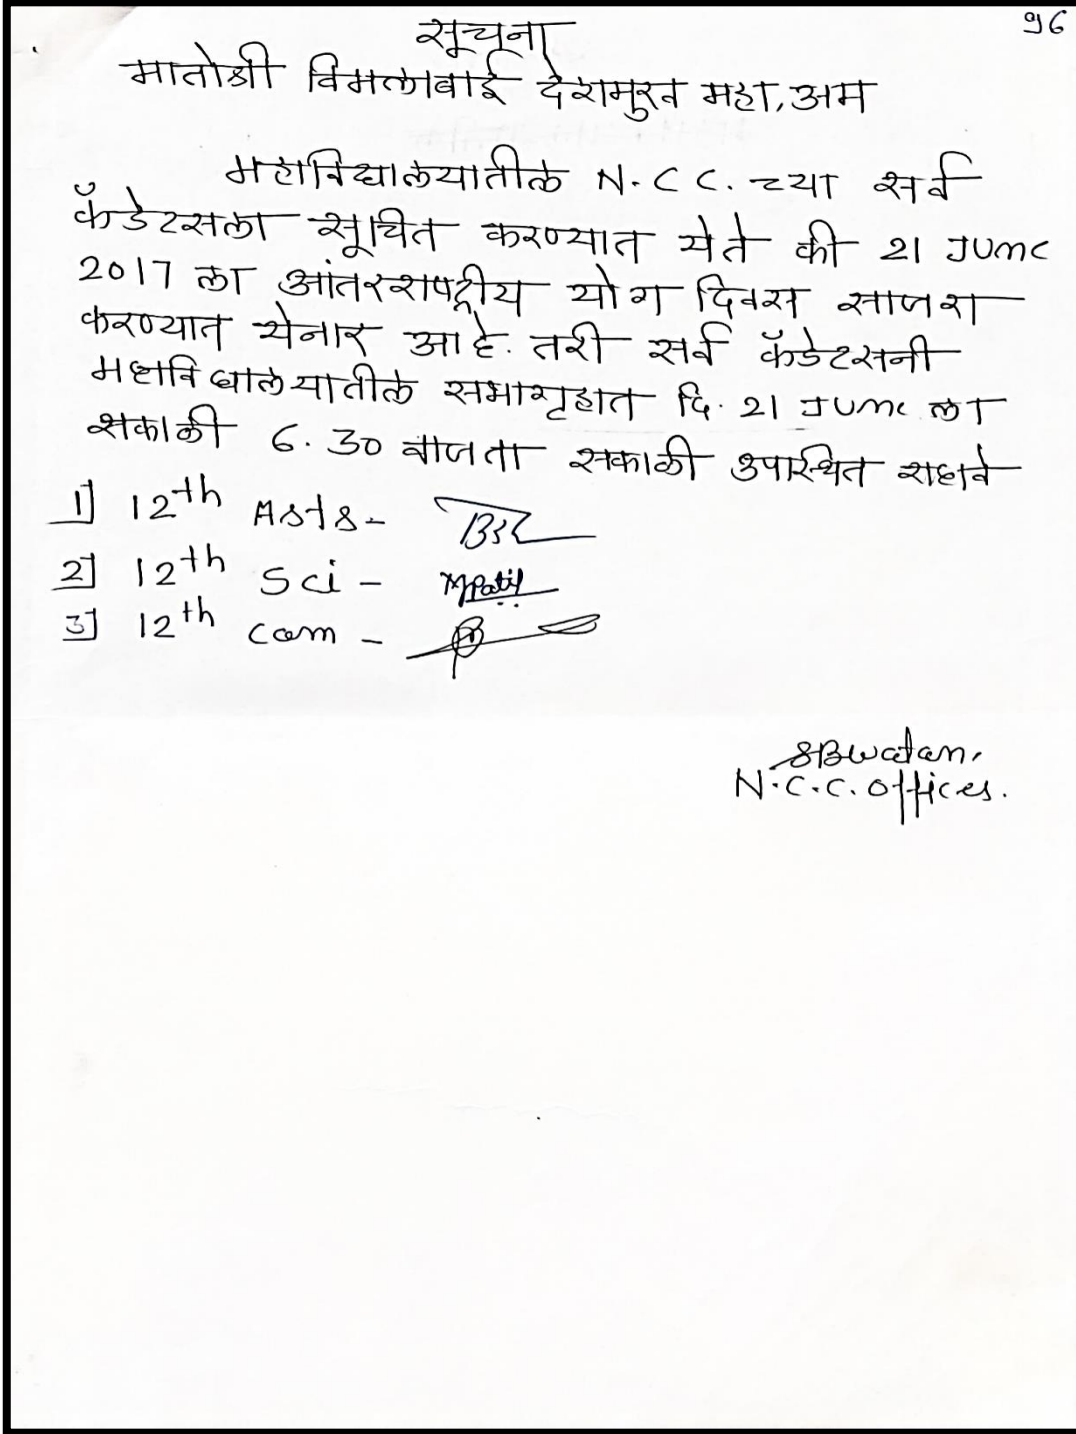 96
सूचना
मातोश्री विमलाबाई देशमुख महा, अम
महाविद्यालयातील N.C C. च्या सर्व
कॅडेटसला सूचित करण्यात येते की 21 June
2017 ला आंतरराष्ट्रीय योग दिवस साजरा
करण्यात येनार आहे. तरी सर्व कॅडेटसनी
महाविद्यालयातील सभागृहात दि. 21 June ला
सकाळी 6.30 वाजता सकाळी उपस्थित राहावे
1] 12th Arts -
2] 12th Sci - MPatil
3] 12th com -
SBwatan,
N.C.C. Officer.